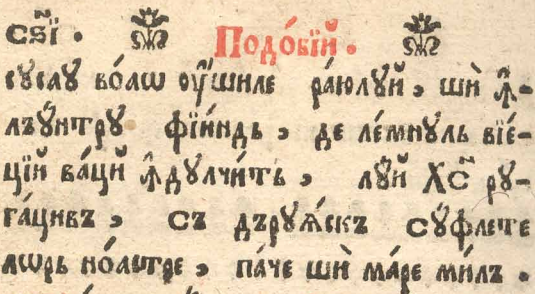 СТ҃ІЙ . Подо́бїй .
сусау во́аѡ оу҆́шиле ра́юлꙋй , шѝ ꙟ҆-
лъꙋ́нтрꙋ фїи́ндь , де ле́мнꙋль вїе́-
цїй ва́цй ꙟ҆дꙋлчи́тъ , лꙋ́й Хс҃ рꙋ-
га́цивъ , съ дърꙋѧ́скъ сꙋ́флете
лѡрь но́астре , па́че шѝ ма́ре ми́лъ .